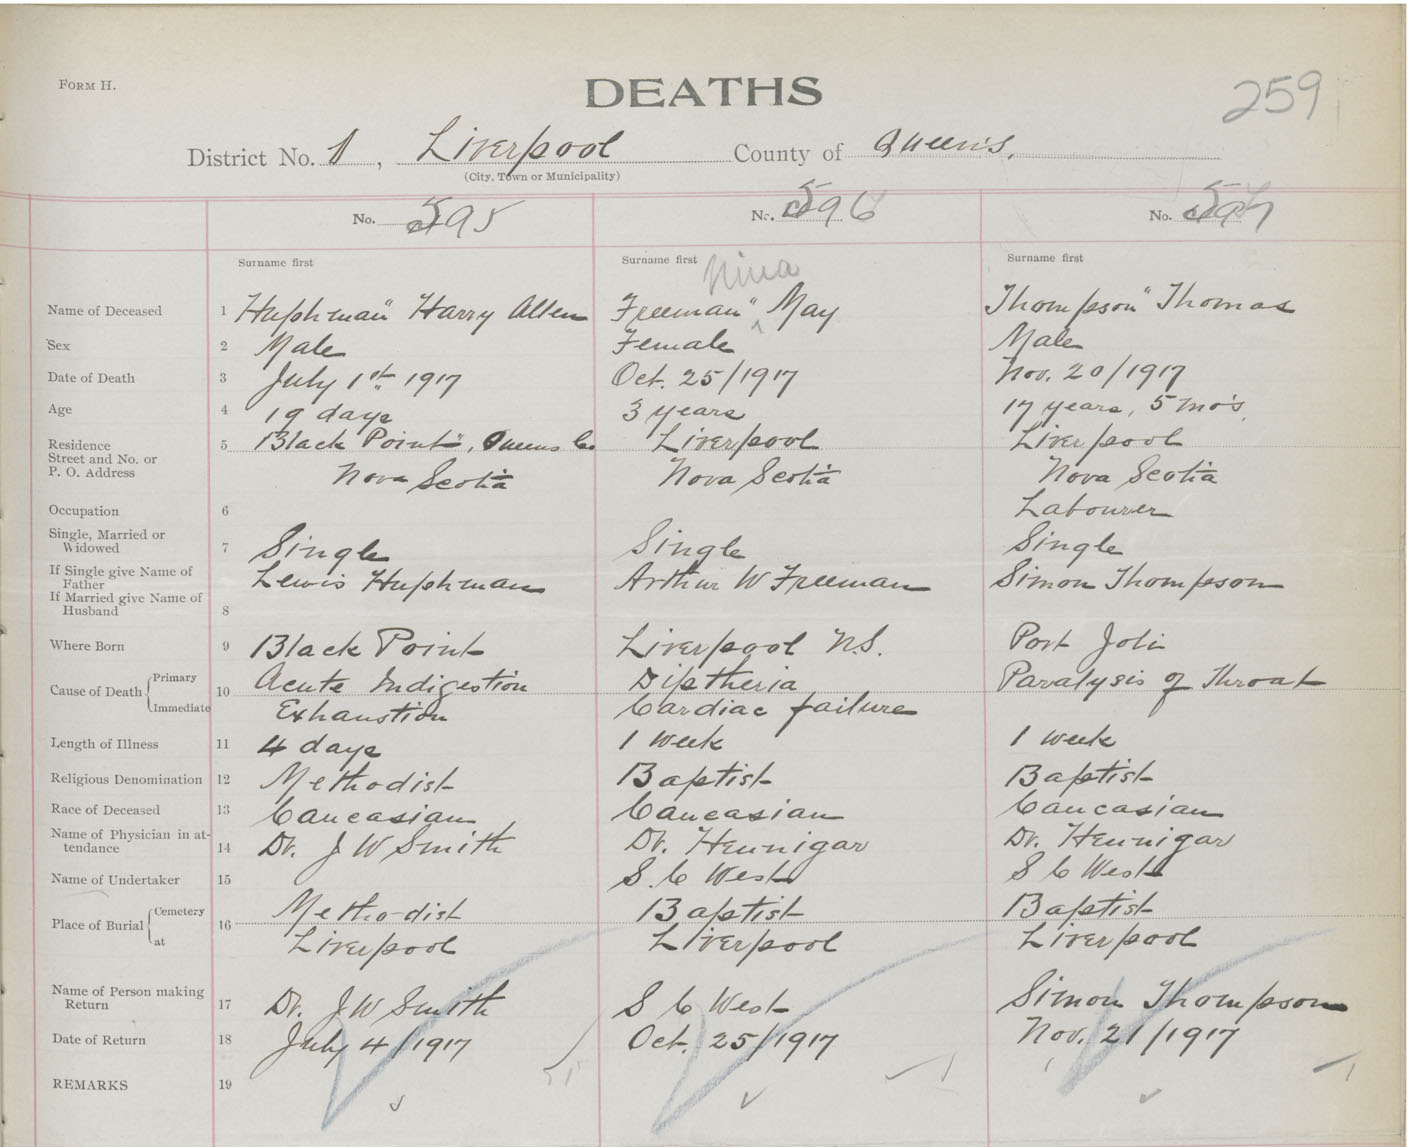 FORM H.
DEATHS
259
District No. 1, Liverpool County of Queen's.
(City, Town or Municipality)
No. 595 No. 596 No. 597
Surname first Surname first Surname first
Nina
Name of Deceased 1 Huphman" Harry Allen Freeman" ^ May Thompson" Thomas
Sex 2 Male Female Male
Date of Death 3 July 1st 1917 Oct. 25/1917 Nov. 20/1917
Age 4 19 days 3 years 17 years, 5 mo's
Residence 5 Black Point", Queens Co Liverpool Liverpool
Street and No. or
P. O. Address Nova Scotia Nova Scotia Nova Scotia
Occupation 6 Labourer
Single, Married or
Widowed 7 Single Single Single
If Single give Name of
Father Lewis Huphman Arthur W Freeman Simon Thompson
If Married give Name of
Husband 8
Where Born 9 Black Point Liverpool N.S. Port Joli
Cause of Death Primary 10 Acute Indigestion Diptheria Paralysis of Throat
Immediate Exhaustion Cardiac failure
Length of Illness 11 4 days 1 week 1 week
Religious Denomination 12 Methodist Baptist Baptist
Race of Deceased 13 Caucasian Caucasian Caucasian
Name of Physician in at-
tendance 14 Dr. J W Smith Dr. Hennigar Dr. Hennigar
Name of Undertaker 15 S. C West S C West
Place of Burial Cemetery 16 Methodist Baptist Baptist
at Liverpool Liverpool Liverpool
Name of Person making
Return 17 Dr. J W Smith S C West Simon Thompson
Date of Return 18 July 4/1917 Oct. 25/1917 Nov. 21/1917
REMARKS 19